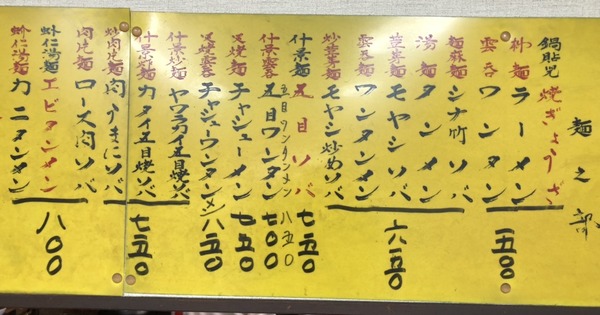 麺之部
鍋貼児 焼ぎょうざ
柳麺 ラーメン
雲呑 ワンタン
五〇〇
麺麻麺 シナ竹ソバ
湯麺 タンメン
荳芽麺 モヤシソバ
雲呑麺 ワンタンメン
炒荳芽麺 モヤシ炒めソバ
六五〇
什景麺 五目ソバ 七五〇
五目ワンタンメン 八五〇
什景雲呑 五目ワンタン 七〇〇
叉焼麺 チャシューメン 七五〇
叉焼雲呑 チャシューワンタンメン 八五〇
什景炒麺 ヤワラカイ五目焼ソバ
カタイ五目焼ソバ
七五〇
炒肉片麺 肉うまにソバ
肉片麺 ロース肉ソバ
蝦仁湯麺 エビタンメン
湯麺 カニタンメン
八〇〇